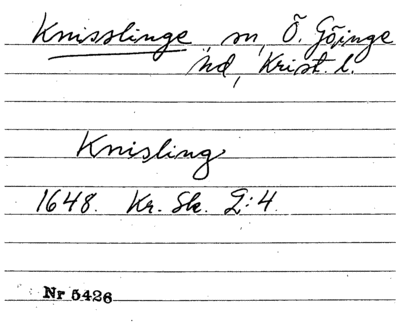 Knisslinge, sn, Ö. Göinge
hd, Krist. l.
Knisling
1648. Kr. Sk. 2:4.
Nr 5426